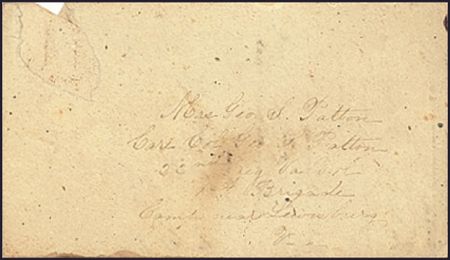 Mrs Geo. S. Patton
Care Col Geo. S. Patton
22nd Reg Va Vol
1st Brigade
Camp near Lewisburg
Va